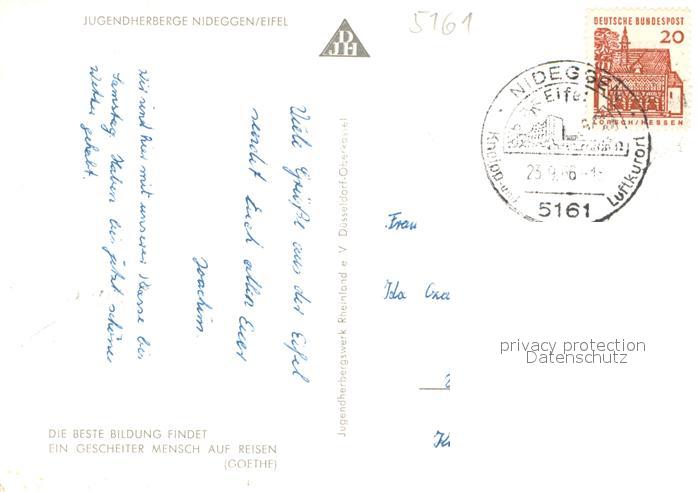 JUGENDHERBERGE NIDEGGEN/EIFEL
DJH
5161
DEUTSCHE BUNDESPOST
20
LORSCH/HESSEN
NIDEGGEN
Eifel
Kneipp-und
Luftkurort
23.9.66
5161
Viele Grüße aus der Eifel
sendet Euch allen Euer
Joachim.
Wir sind hier mit unserer Klasse bis
Samstag. Haben bis jetzt schönes
Wetter gehabt.
Jugendherbergswerk Rheinland e V Düsseldorf-Oberkassel
Frau
Ida
privacy protection
Datenschutz
DIE BESTE BILDUNG FINDET
EIN GESCHEITER MENSCH AUF REISEN
(GOETHE)